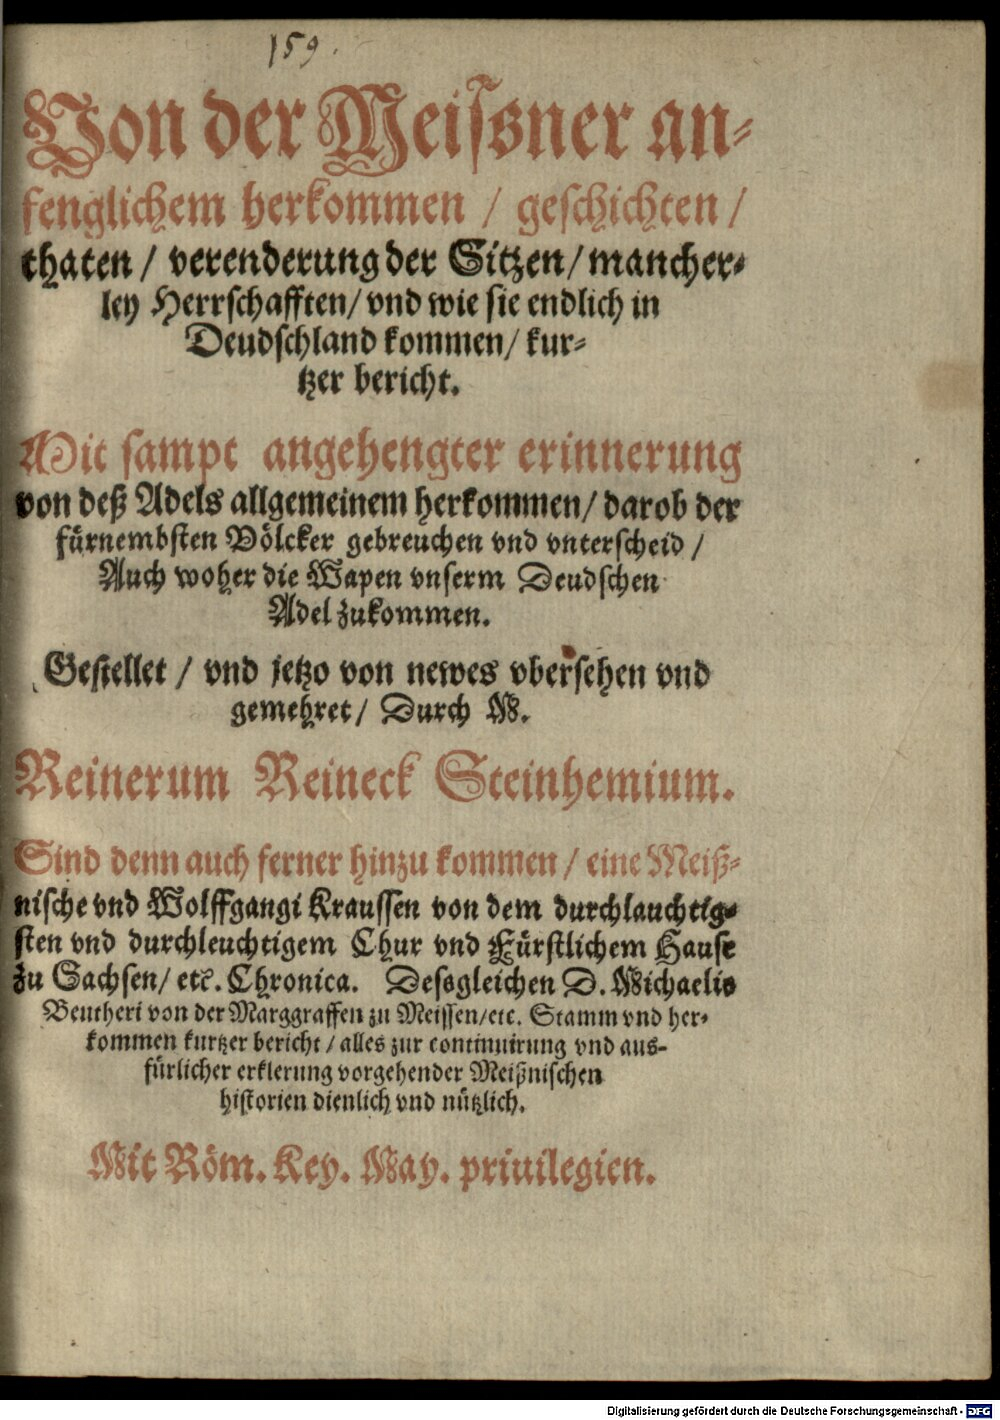 159.
Von der Meiſsner an⸗
fenglichem herkommen / geſchichten /
thaten / verenderung der Sitzen / mancher⸗
ley Herrſchafften / vnd wie ſie endlich in
Deudſchland kommen / kur⸗
tzer bericht.
Mit ſampt angehengter erinnerung
von deß Adels allgemeinem herkommen / darob der
fürnembſten Völcker gebreuchen vnd vnterſcheid /
Auch woher die Wapen vnſerm Deudſchen
Adel zukommen.
Geſtellet / vnd jetzo von newes vberſehen vnd
gemehret / Durch M.
Reinerum Reineck Steinhemium.
Sind denn auch ferner hinzu kommen / eine Meiß⸗
niſche vnd Wolffgangi Krauſſen von dem durchlauchtig⸗
ſten vnd durchleuchtigem Chur vnd Fürſtlichem Hauſe
zu Sachſen / etc. Chronica. Deſsgleichen D. Michaelis
Beutheri von der Marggraffen zu Meiſſen / etc. Stamm vnd her⸗
kommen kurtzer bericht / alles zur continuirung vnd aus⸗
fürlicher erklerung vorgehender Meißniſchen
hiſtorien dienlich vnd nützlich.
Mit Röm. Key. May. priuilegien.
Digitalisierung gefördert durch die Deutsche Forschungsgemeinschaft - DFG